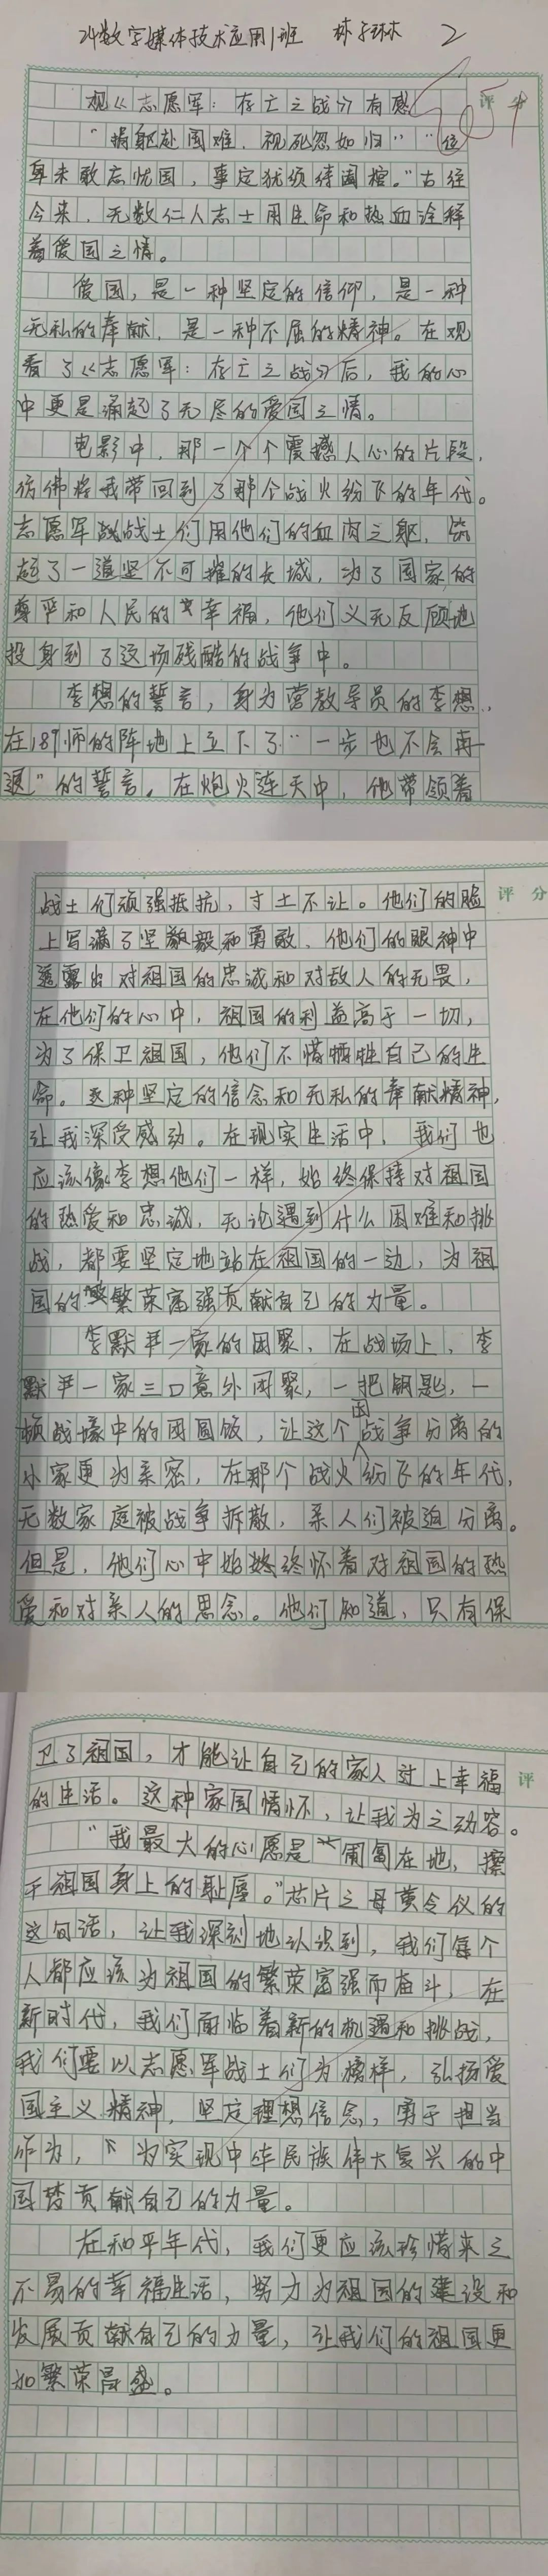 24数字媒体技术应用1班 林子环 2
评分
观《志愿军：存亡之战》有感
“捐躯赴国难，视死忽如归”“位
卑未敢忘忧国，事定犹须待阖棺。”古往
今来，无数仁人志士用生命和热血诠释
着爱国之情。
爱国，是一种坚定的信仰，是一种
无私的奉献，是一种不屈的精神。在观
看了《志愿军：存亡之战》后，我的心
中更是涌起了无尽的爱国之情。
电影中，那一个个震撼人心的片段，
仿佛将我带回到了那个战火纷飞的年代。
志愿军战士们用他们的血肉之躯，筑
起了一道坚不可摧的长城，为了国家的
尊严和人民的幸福，他们义无反顾地
投身到了这场残酷的战争中。
李想的誓言，身为营教导员的李想，
在189师的阵地上立下了“一步也不会再
退”的誓言。在炮火连天中，他带领着
评分
战士们顽强抵抗，寸土不让。他们的脸
上写满了坚毅和勇敢，他们的眼神中
透露出对祖国的忠诚和对敌人的无畏，
在他们的心中，祖国的利益高于一切，
为了保卫祖国，他们不惜牺牲自己的生
命。这种坚定的信念和无私的奉献精神，
让我深受感动。在现实生活中，我们也
应该像李想他们一样，始终保持对祖国
的热爱和忠诚，无论遇到什么困难和挑
战，都要坚定地站在祖国的一边，为祖
国的繁荣富强贡献自己的力量。
李默尹一家的团聚，在战场上，李
默尹一家三口意外团聚，一把钥匙，一
顿战壕中的团圆饭，让这个因战争分离的
小家更为亲密，在那个战火纷飞的年代，
无数家庭被战争拆散，亲人们被迫分离。
但是，他们心中始终怀着对祖国的热
爱和对亲人的思念。他们知道，只有保
评
卫了祖国，才能让自己的家人过上幸福
的生活。这种家国情怀，让我为之动容。
“我最大的心愿是匍匐在地，擦
干祖国身上的耻辱。”芯片之母黄令仪的
这句话，让我深刻地认识到，我们每个
人都应该为祖国的繁荣富强而奋斗，在
新时代，我们面临着新的机遇和挑战，
我们要以志愿军战士们为榜样，弘扬爱
国主义精神，坚定理想信念，勇于担当
作为，为实现中华民族伟大复兴的中
国梦贡献自己的力量。
在和平年代，我们更应该珍惜来之
不易的幸福生活，努力为祖国的建设和
发展贡献自己的力量，让我们的祖国更
加繁荣昌盛。